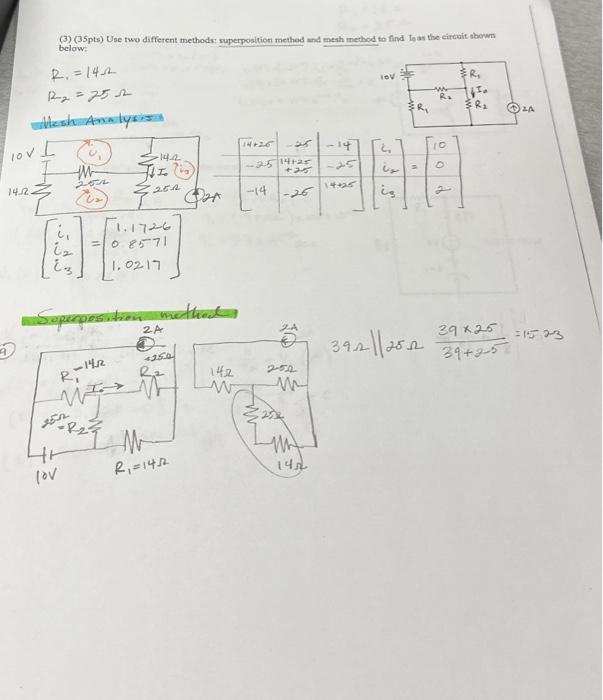 (3) (35pts) Use two different methods: superposition method and mesh method to find I₀ as the circuit shown
below:
R₁ = 14Ω
R₂ = 25Ω
10V
R₁
R₂
I₀
R₁
R₂
2A
Mesh Analysis:
10V
i₁
14Ω
25Ω
I₀
i₃
14Ω
i₂
25Ω
2A
14+25 -25 -14 i₁ 10
-25 14+25+25 -25 i₂ = 0
-14 -25 14+25 i₃ 2
i₁ 1.1726
i₂ = 0.8571
i₃ 1.0217
Superposition method
2A
R₁ = 14Ω
=25Ω
R₂
I₀
25Ω
=R₂
10V
R₁ = 14Ω
2A
14Ω
25Ω
25Ω
14Ω
39Ω||25Ω 39×25 / 39+25 = 15.23